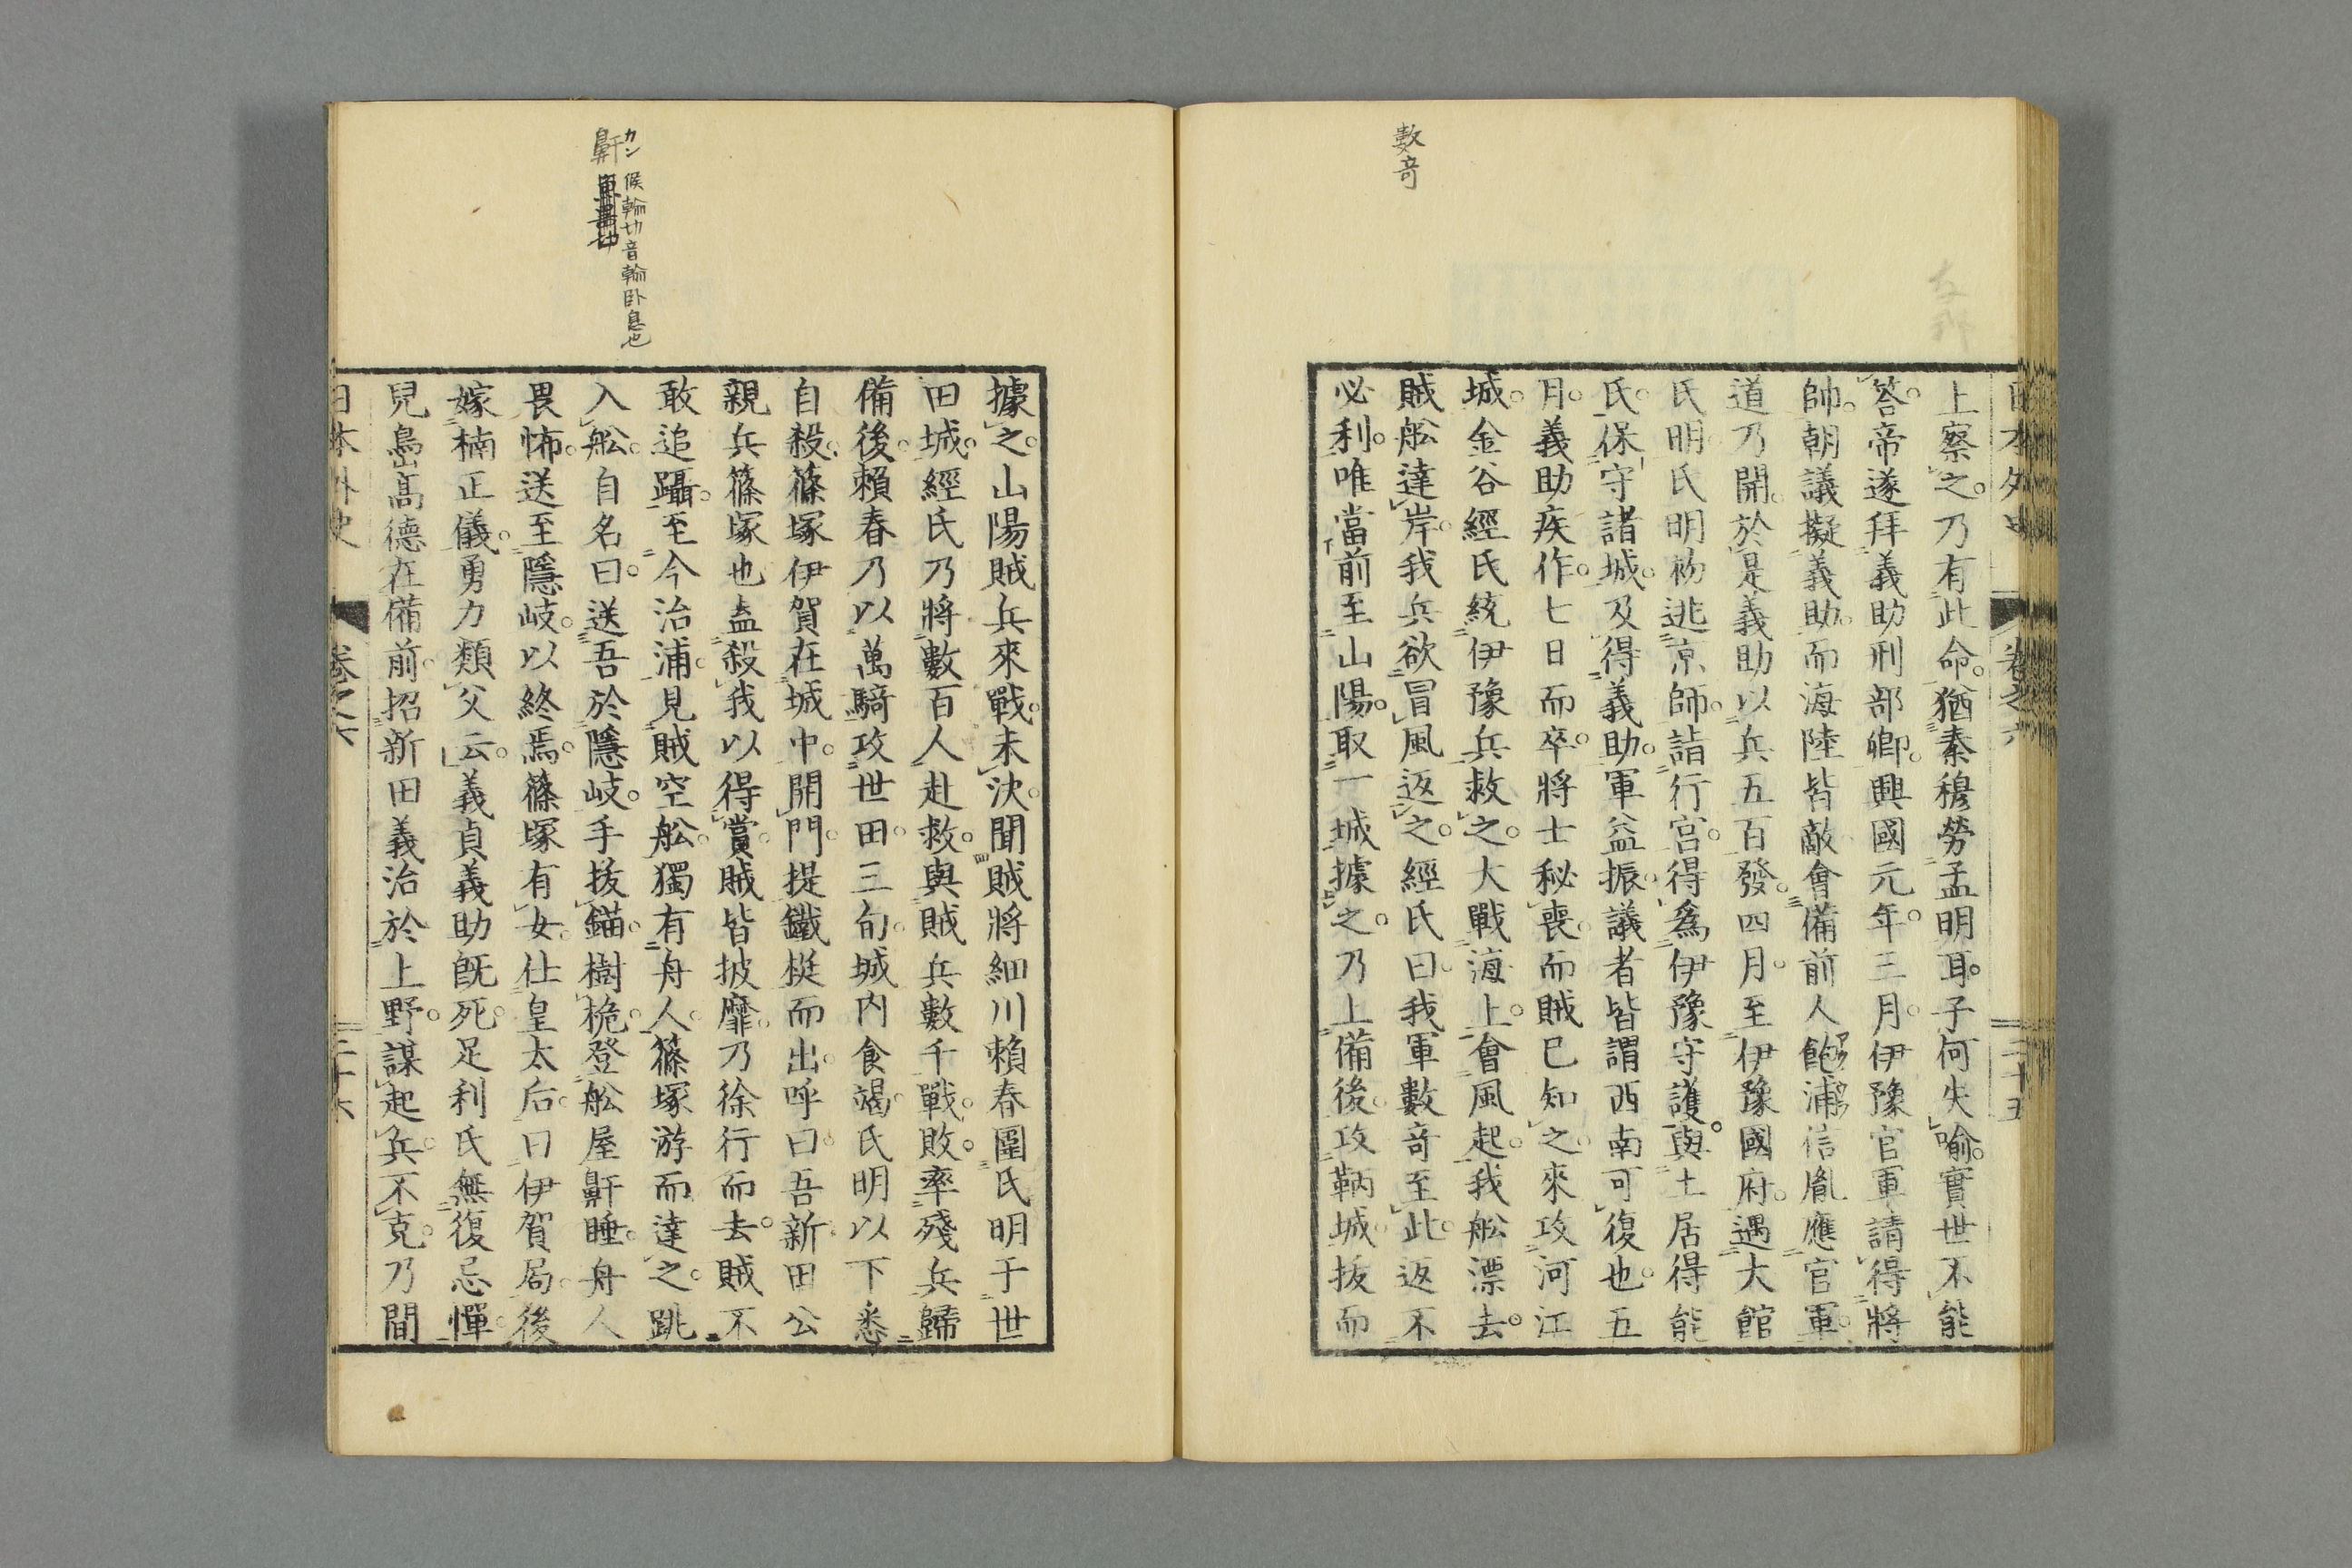 數奇
日本外史 卷之六 二十五
上察之。乃有此命。猶秦穆勞孟明耳。子何失喻。實世不能
答。帝遂拜義助刑部卿。興國元年。三月。伊豫官軍請得將
帥。朝議擬義助。而海陸皆敵。會備前人飽浦信胤應官軍。
道乃開。於是義助以兵五百發。四月。至伊豫國府。遇大館
氏明。氏明初逃京師。詣行宮。得爲伊豫守護。與土居得能
氏。保守諸城。及得義助。軍益振。議者皆謂西南可復也。五
月。義助疾作。七日而卒。將士秘喪。而賊已知之。來攻河江
城。金谷經氏統伊豫兵救之。大戰海上。會風起。我舩漂去。
賊舩達岸。我兵欲冒風返之。經氏曰。我軍數奇至此。返不
必利。唯當前至山陽。取一城據之。乃上備後。攻鞆城。拔而
カン
鼾 候輪切音輪卧息也
據之。山陽賊兵來戰。未決。聞賊將細川賴春圍氏明于世
田城。經氏乃將數百人赴救。與賊兵數千戰。敗。率殘兵歸
備後。賴春乃以萬騎攻世田。三旬。城内食竭。氏明以下悉
自殺。篠塚伊賀在城中。開門。提鐵梃而出。呼曰。吾新田公
親兵篠塚也。盍殺我以得賞。賊皆披靡。乃徐行而去。賊不
敢追躡。至今治浦。見賊空舩。獨有舟人。篠塚游而達之。跳
入舩。自名曰。送吾於隱岐。手拔錨。樹桅。登舩屋鼾睡。舟人
畏怖。送至隱岐。以終焉。篠塚有女。仕皇太后。曰伊賀局。後
嫁楠正儀。勇力類父云。義貞義助既死。足利氏無復忌憚。
兒島高德在備前。招新田義治於上野。謀起兵。不克。乃間
日本外史 卷之六 二十六